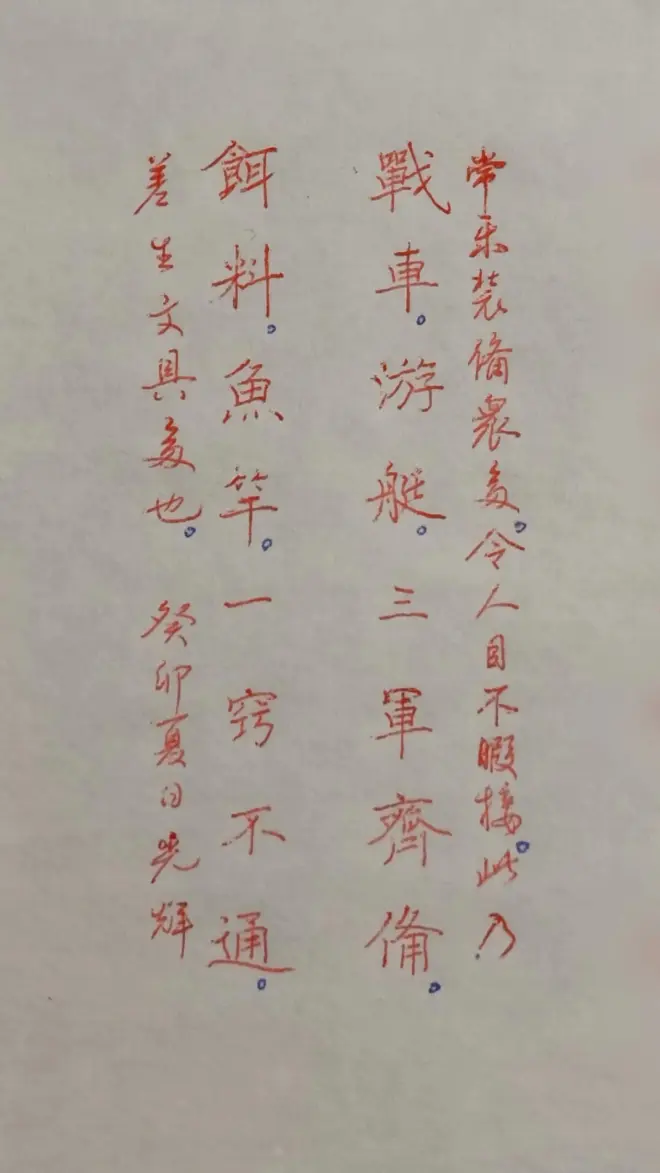 常乐装俻衆多。令人目不暇接。此乃
戰車。游艇。三軍齊備。
餌料。魚竿。一窍不通。
差生文具多也。 癸卯夏日光辉